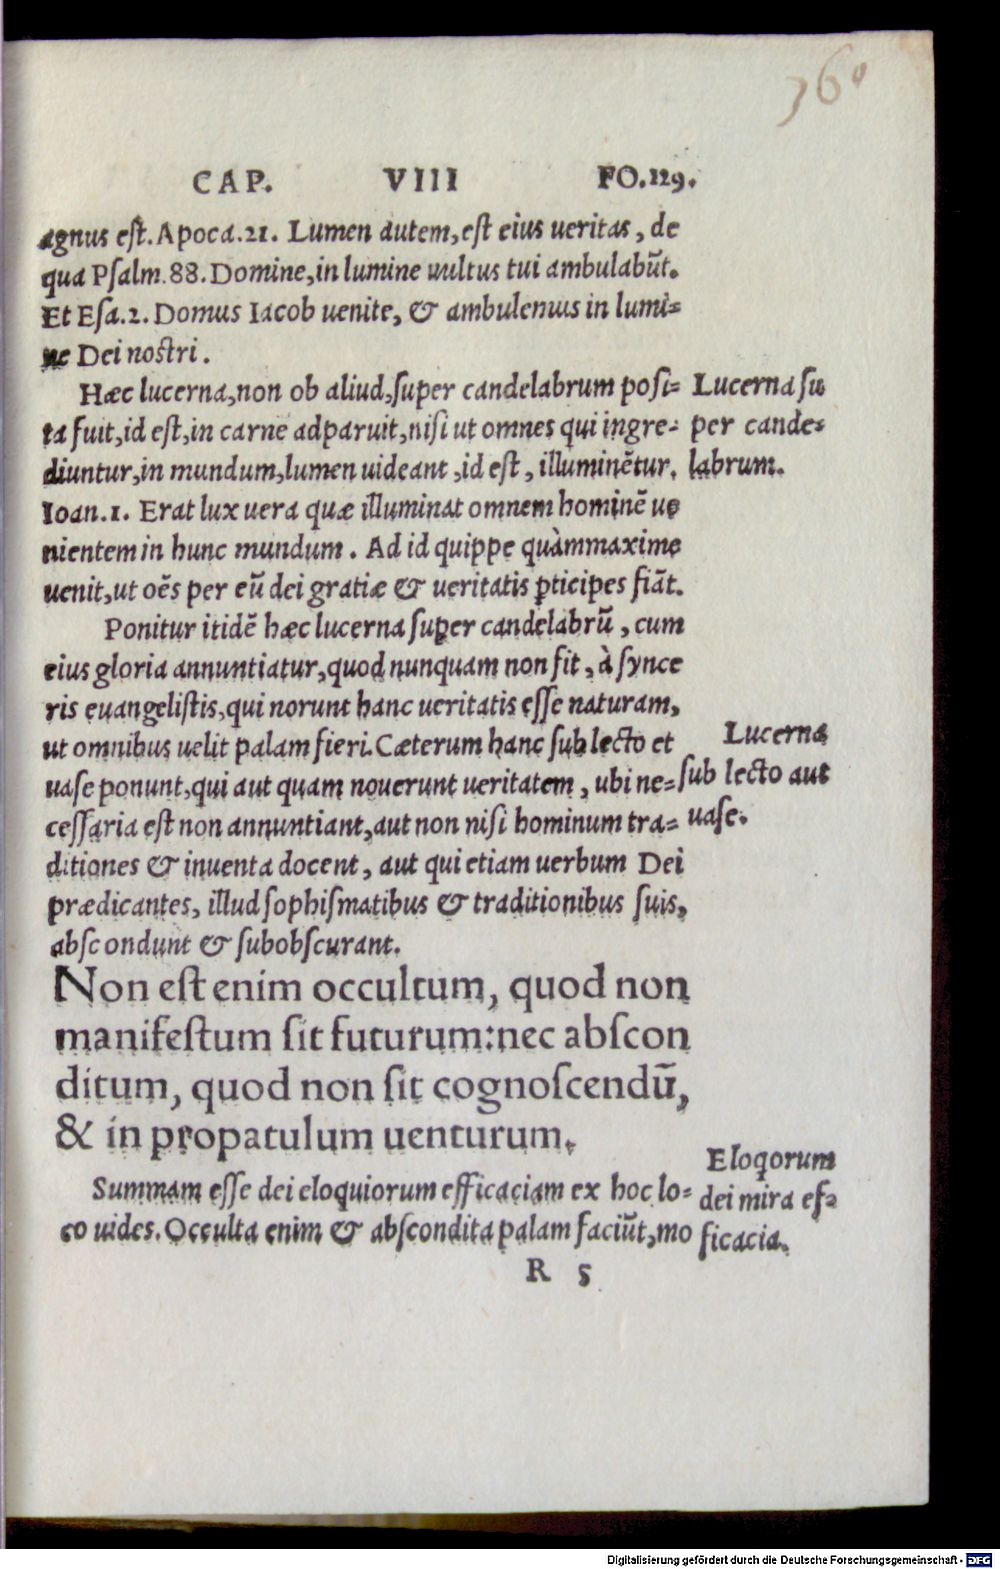 360
CAP. VIII FO.129.
agnus est. Apoca.21. Lumen autem, est eius ueritas, de
qua Psalm.88. Domine, in lumine uultus tui ambulabūt.
Et Esa.2. Domus Iacob uenite, & ambulemus in lumi=
ne Dei nostri.
Hæc lucerna, non ob aliud, super candelabrum posi=
ta fuit, id est, in carne adparuit, nisi ut omnes qui ingre=
diuntur, in mundum, lumen uideant, id est, illuminētur.
Ioan.1. Erat lux uera quæ illuminat omnem hominē ue
nientem in hunc mundum. Ad id quippe quàmmaxime
uenit, ut oēs per eū dei gratiæ & ueritatis ꝑticipes fiāt.
Lucerna su
per cande=
labrum.
Ponitur itidē hæc lucerna super candelabrū, cum
eius gloria annuntiatur, quod nunquam non fit, à synce
ris euangelistis, qui norunt hanc ueritatis esse naturam,
ut omnibus uelit palam fieri. Cæterum hanc sub lecto et
uase ponunt, qui aut quam nouerunt ueritatem, ubi ne=
cessaria est non annuntiant, aut non nisi hominum tra=
ditiones & inuenta docent, aut qui etiam uerbum Dei
prædicantes, illud sophismatibus & traditionibus suis,
absc ondunt & subobscurant.
Lucerna
sub lecto aut
uase.
Non est enim occultum, quod non
manifestum sit futurum: nec abscon
ditum, quod non sit cognoscendū,
& in propatulum uenturum.
Summam esse dei eloquiorum efficaciam ex hoc lo=
co uides. Occulta enim & abscondita palam faciūt, mo
Eloqorum
dei mira ef=
ficacia.
R 5
Digitalisierung gefördert durch die Deutsche Forschungsgemeinschaft - DFG